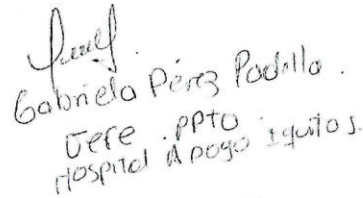 Gabriela Pérez Padilla.
Jefe. PPTO
Hospital Apoyo Iquitos.